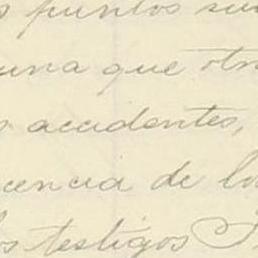 s puntos su
una que otr
s accidentes,
cencia de lo
os testigos